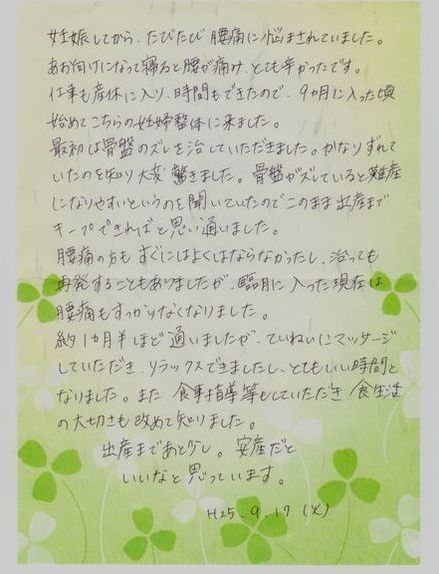 妊娠してから、たびたび腰痛に悩まされていました。
あお向けになって寝ると腰が痛み、とても辛かったです。
仕事も産休に入り、時間もできたので、9ヵ月に入った頃
始めてこちらの妊婦整体に来ました。
最初は骨盤のズレを治していただきました。かなりずれて
いたのを知り大変驚きました。骨盤がズレていると難産
になりやすいというのを聞いていたのでこのまま出産まで
キープできればと思い通いました。
腰痛の方もすぐにはよくはならなかったし、治っても
再発することもありましたが、臨月に入った現在は
腰痛もすっかりなくなりました。
約1ヵ月半ほど通いましたが、ていねいにマッサージ
していただき、リラックスできましたし、とてもいい時間と
なりました。また食事指導等もしていただき食生活
の大切さも改めて知りました。
出産まであと少し。安産だと
いいなと思っています。
H25.9.17(火)